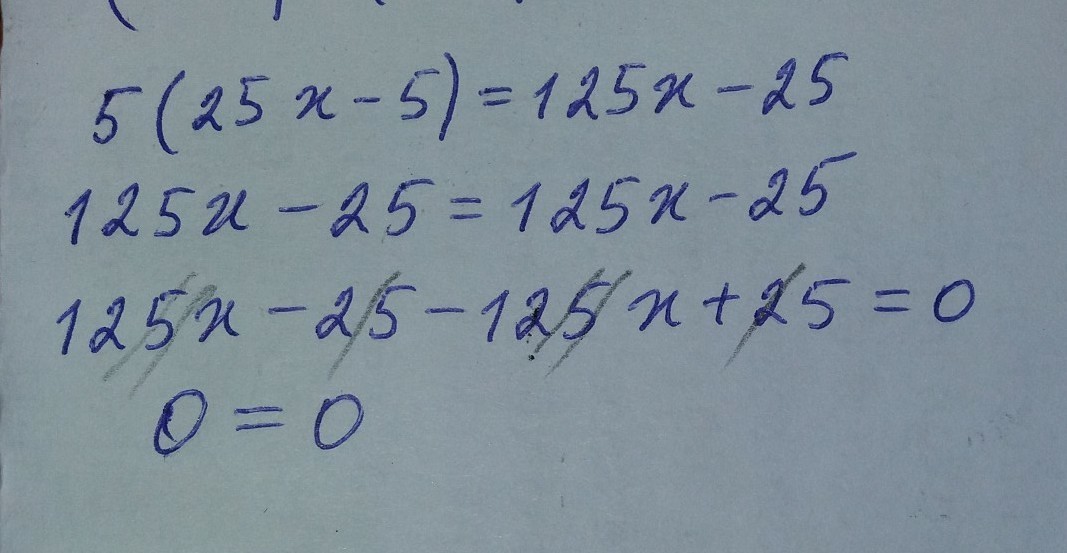 5(25x-5)=125x-25
125x-25=125x-25
125x-25-125x+25=0
0=0